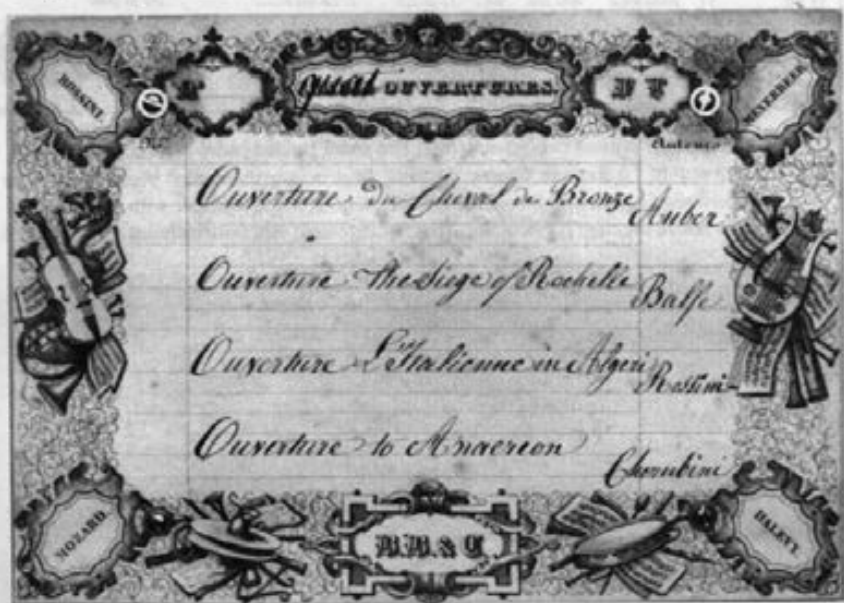 ROSSINI.
quatre OUVERTURES.
F T
MEYERBEER.
No
Auteurs
Ouverture du Cheval de Bronze Auber
Ouverture The Siege of Rochelle Balfe
Ouverture L'Italienne in Algeri Rossini
Ouverture to Anacreon Cherubini
MOZARD.
B.B. & C.
HALEVY.